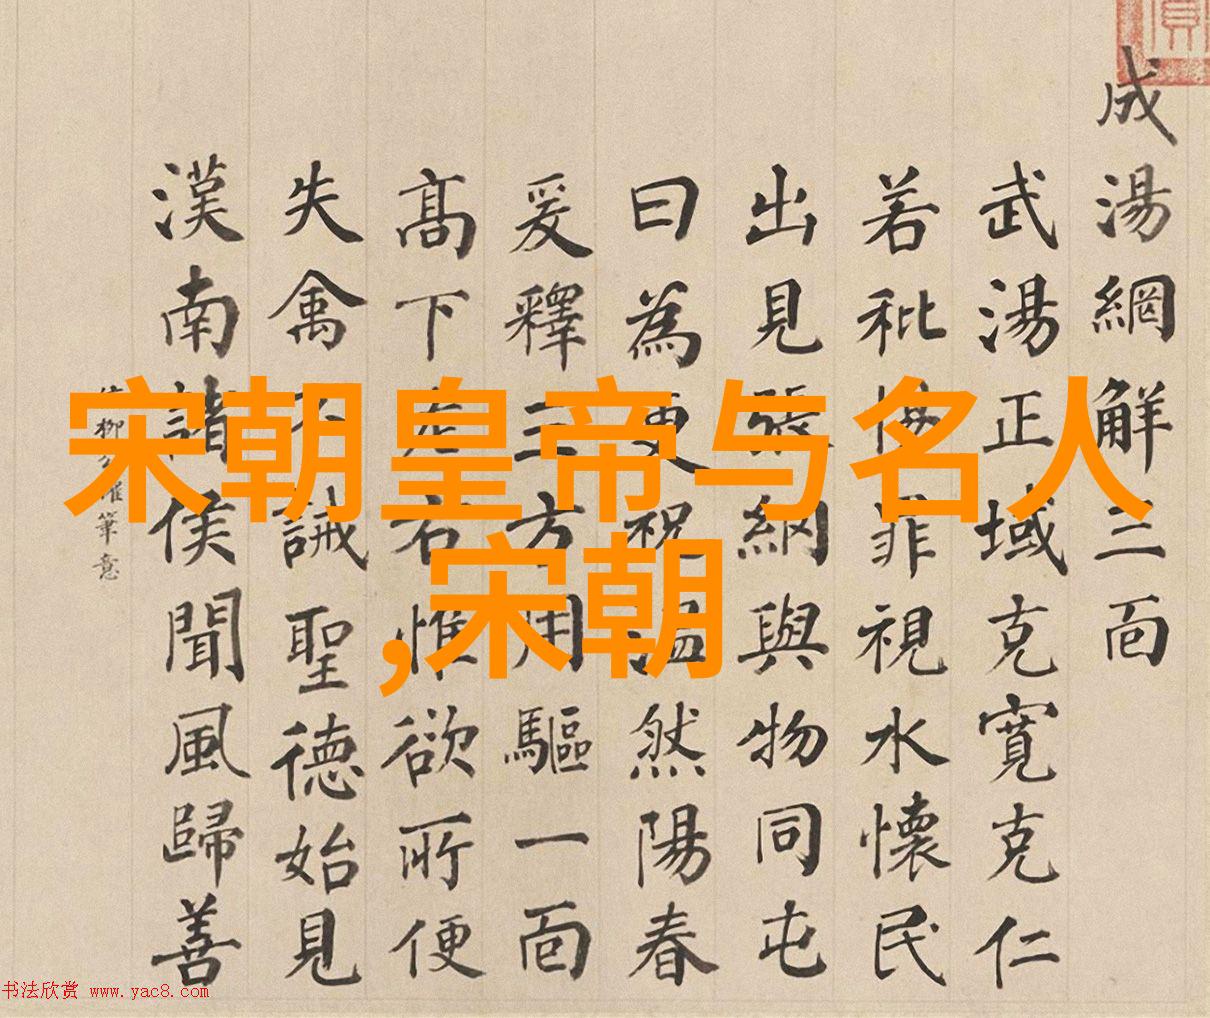 宋朝皇帝与名人
,宋朝
成湯網解三面
武湯正域克寬克仁
若秕非視水懷民
出見張網與物同屯
曰為更祝溫然陽春
爰釋三方用驅一面
高下左右惟欲所便
失禽不誡聖德始見
漢南諸侯聞風歸善
柳公權筆意
书法欣赏 www.yac8.com